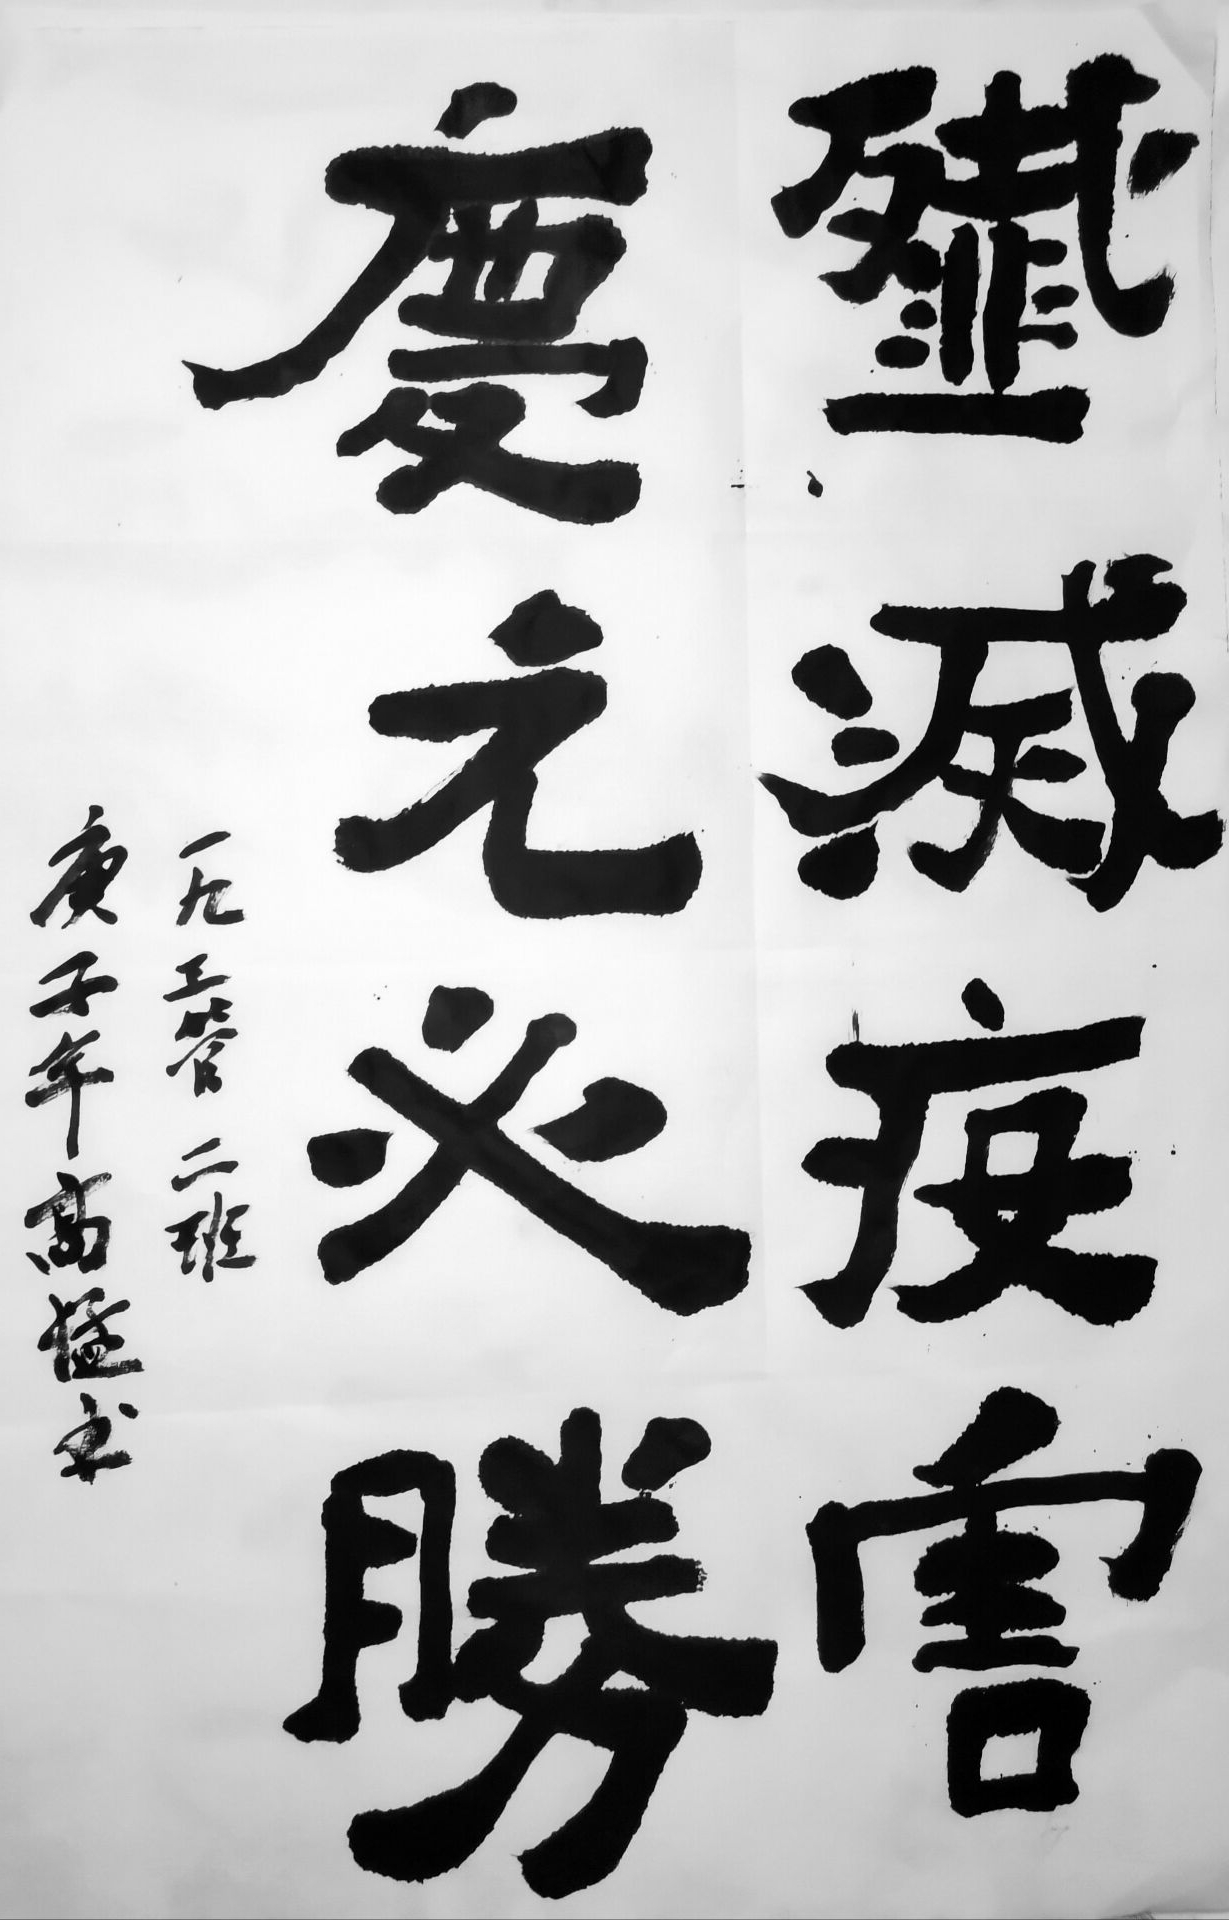 殲滅疫害
慶之必勝
一九工管二班
庚子年高猛书